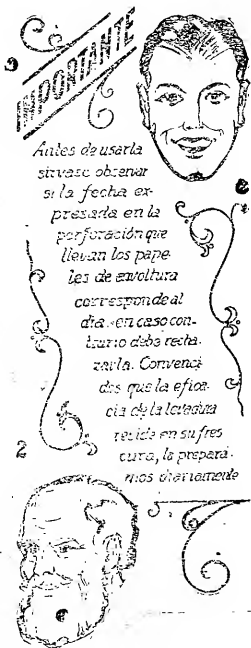 IMPORTANTE
Antes de usarla
sírvase observar
si la fecha ex-
presada en la
perforación que
llevan los pape-
les de envoltura
corresponde al
día, en caso con-
trario debe recha-
zarla. Convenci-
dos que la efica-
cia de la levadura
reside en su fres
cura, la prepara-
mos diariamente
2